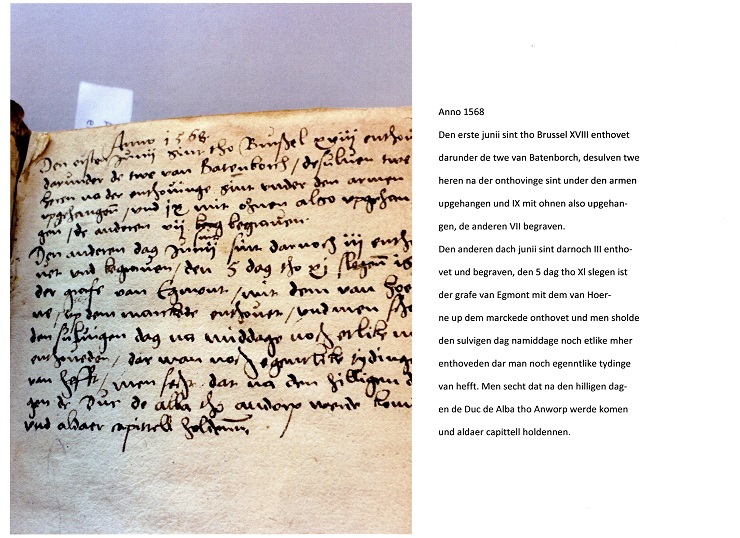 Anno 1568
Den ersten Junii sint tho Brussel xviij enthou
darunder de twe van Batenborch / desuluen twe
heren na der enthouinge sint under den armen
upgehangen / und ix mit ohnen also upgehan
gen / de anderen vij begrauen
Den anderen dag Junii sint darnoch iij entho
uet und begrauen / den 5 dag tho xj slegen is
der grafe van Egmont / mit dem van Hoe
ne / up dem marckede enthouet / und men scho
den suluigen dag na middage noch etlike m
enthoueden / dar man noch egentlike tydinge
van hefft / men secht dat na den hilligen d
gen de Duc de Alba tho andorp werde kom
und aldaer capittell holdenn
Anno 1568
Den erste junii sint tho Brussel XVIII enthovet
darunder de twe van Batenborch, desulven twe
heren na der onthovinge sint under den armen
upgehangen und IX mit ohnen also upgehan-
gen, de anderen VII begraven.
Den anderen dach junii sint darnoch III entho-
vet und begraven, den 5 dag tho Xl slegen ist
der grafe van Egmont mit dem van Hoer-
ne up dem marckede onthovet und men sholde
den sulvigen dag namiddage noch etlike mher
enthoveden dar man noch egenntlike tydinge
van hefft. Men secht dat na den hilligen dag-
en de Duc de Alba tho Anworp werde komen
und aldaer capittell holdennen.